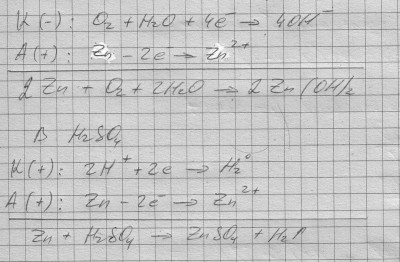 К(-): O₂ + H₂O + 4e̅ → 4OH⁻
А(+): Zn - 2e̅ → Zn²⁺
2Zn + O₂ + 2H₂O → 2Zn(OH)₂
В H₂SO₄
К(+): 2H⁺ + 2e → H₂⁰
А(+): Zn - 2e̅ → Zn²⁺
Zn + H₂SO₄ → ZnSO₄ + H₂↑